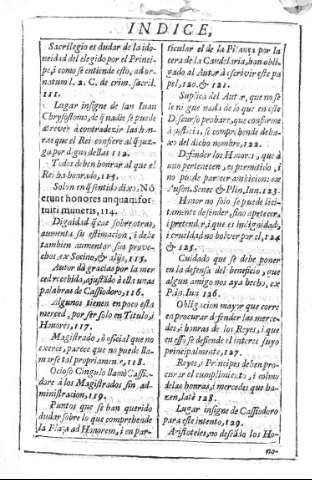 INDICE,
Sacrilegio es dudar de la ido
neidad del elegido por el Princi-
pe, i como se entiende esto, ad or-
natum l. 2. C. de crim. sacril.
111.
Lugar insigne de san Iuan
Chrysostomo, de q nadie se puede
atrever à contradezir las hon-
ras que el Rei confiere al q juz-
ga por dignos dellas 112.
Todos deben honrar al que el
Rei ha honrado, 113.
Solon en q sentido dixo, Nō
erunt honores unquam for-
tuiti muneris, 114.
Dignidad q cae sobre otras,
aumenta su estimacion, i debe
tambien aumentar sus prove-
chos ex Socino, & alijs, 115.
Autor dà gracias por la mer
ced recebida, ajustādo à ella unas
palabras de Cassiodoro, 116.
Algunos tienen en poco esta
merced, por ser solo en Titulo, i
Honores, 117.
Magistrado, ò oficial que no
exerce, parece que no puede lla-
marse tal propriamente, 118.
Ocioso Cingulo llamò Cassio-
doro à los Magistrados sin ad-
ministracion, 119.
Puntos que se han querido
dudar sobre lo que comprehende
la Plaça ad Honorem, i en par-
ticular el de la Pitança por la
cera de la Candelaria, han obli-
gado al Autor à escrivir este pa
pel, 120. & 121.
Suplica del Autor, que no se
le niegue nada de lo que en este
Discurso probare, que es conforme
à justicia, si comprehende deba-
xo del dicho nombre, 122.
Defender los Honores, que à
uno pertenecen, es permitido, i
no puede parecer ambicioso: ex
Auson. Senec. & Plin. Iun. 123.
Honor no solo se puede lici-
tamente defender, sino apetecer,
i pretender, i que es iniquidad,
i crueldad no bolver por el, 124
& 125.
Cuidado que se debe poner
en la defensa del beneficio, que
algun amigo nos aya hecho, ex
Plin. Iun. 126.
Obligacion mayor que corre
en procurar defender las merce-
des, i honras de los Reyes, i que
en esso se defiende el interes suyo
principalmente, 127.
Reyes, i Principes deben pro-
curar el cumplimiento, i colmo
de las honras, i mercedes que ha-
zen, latè 128.
Lugar insigne de Cassiodoro
para este intento, 129.
Aristoteles, no desdeño los Ho-
no-